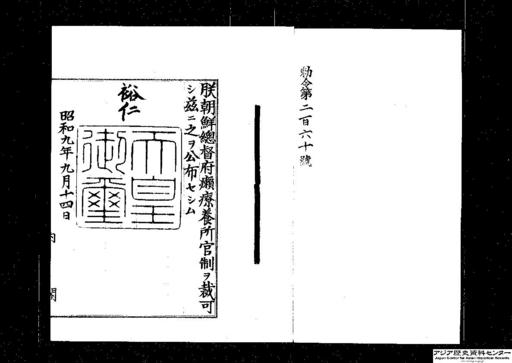 勅令第二百六十號
朕朝鮮總督府癩療養所官制ヲ裁可
シ茲ニ之ヲ公布セシム
裕仁
天皇御璽
昭和九年九月十四日
内閣
アジア歴史資料センター
Japan Center for Asian Historical Records